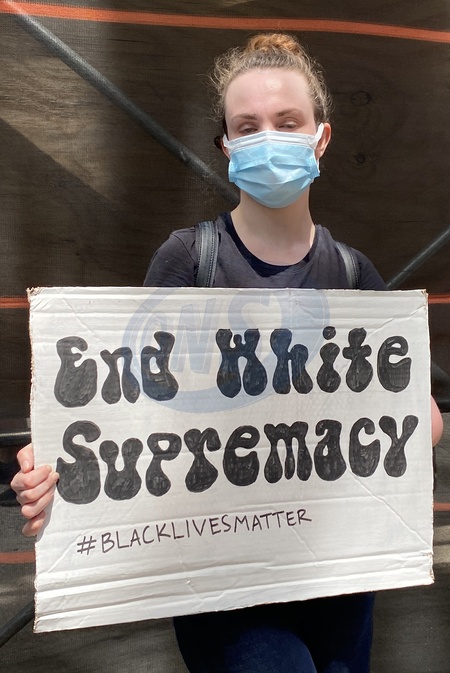 End White
Supremacy
#BLACKLIVESMATTER